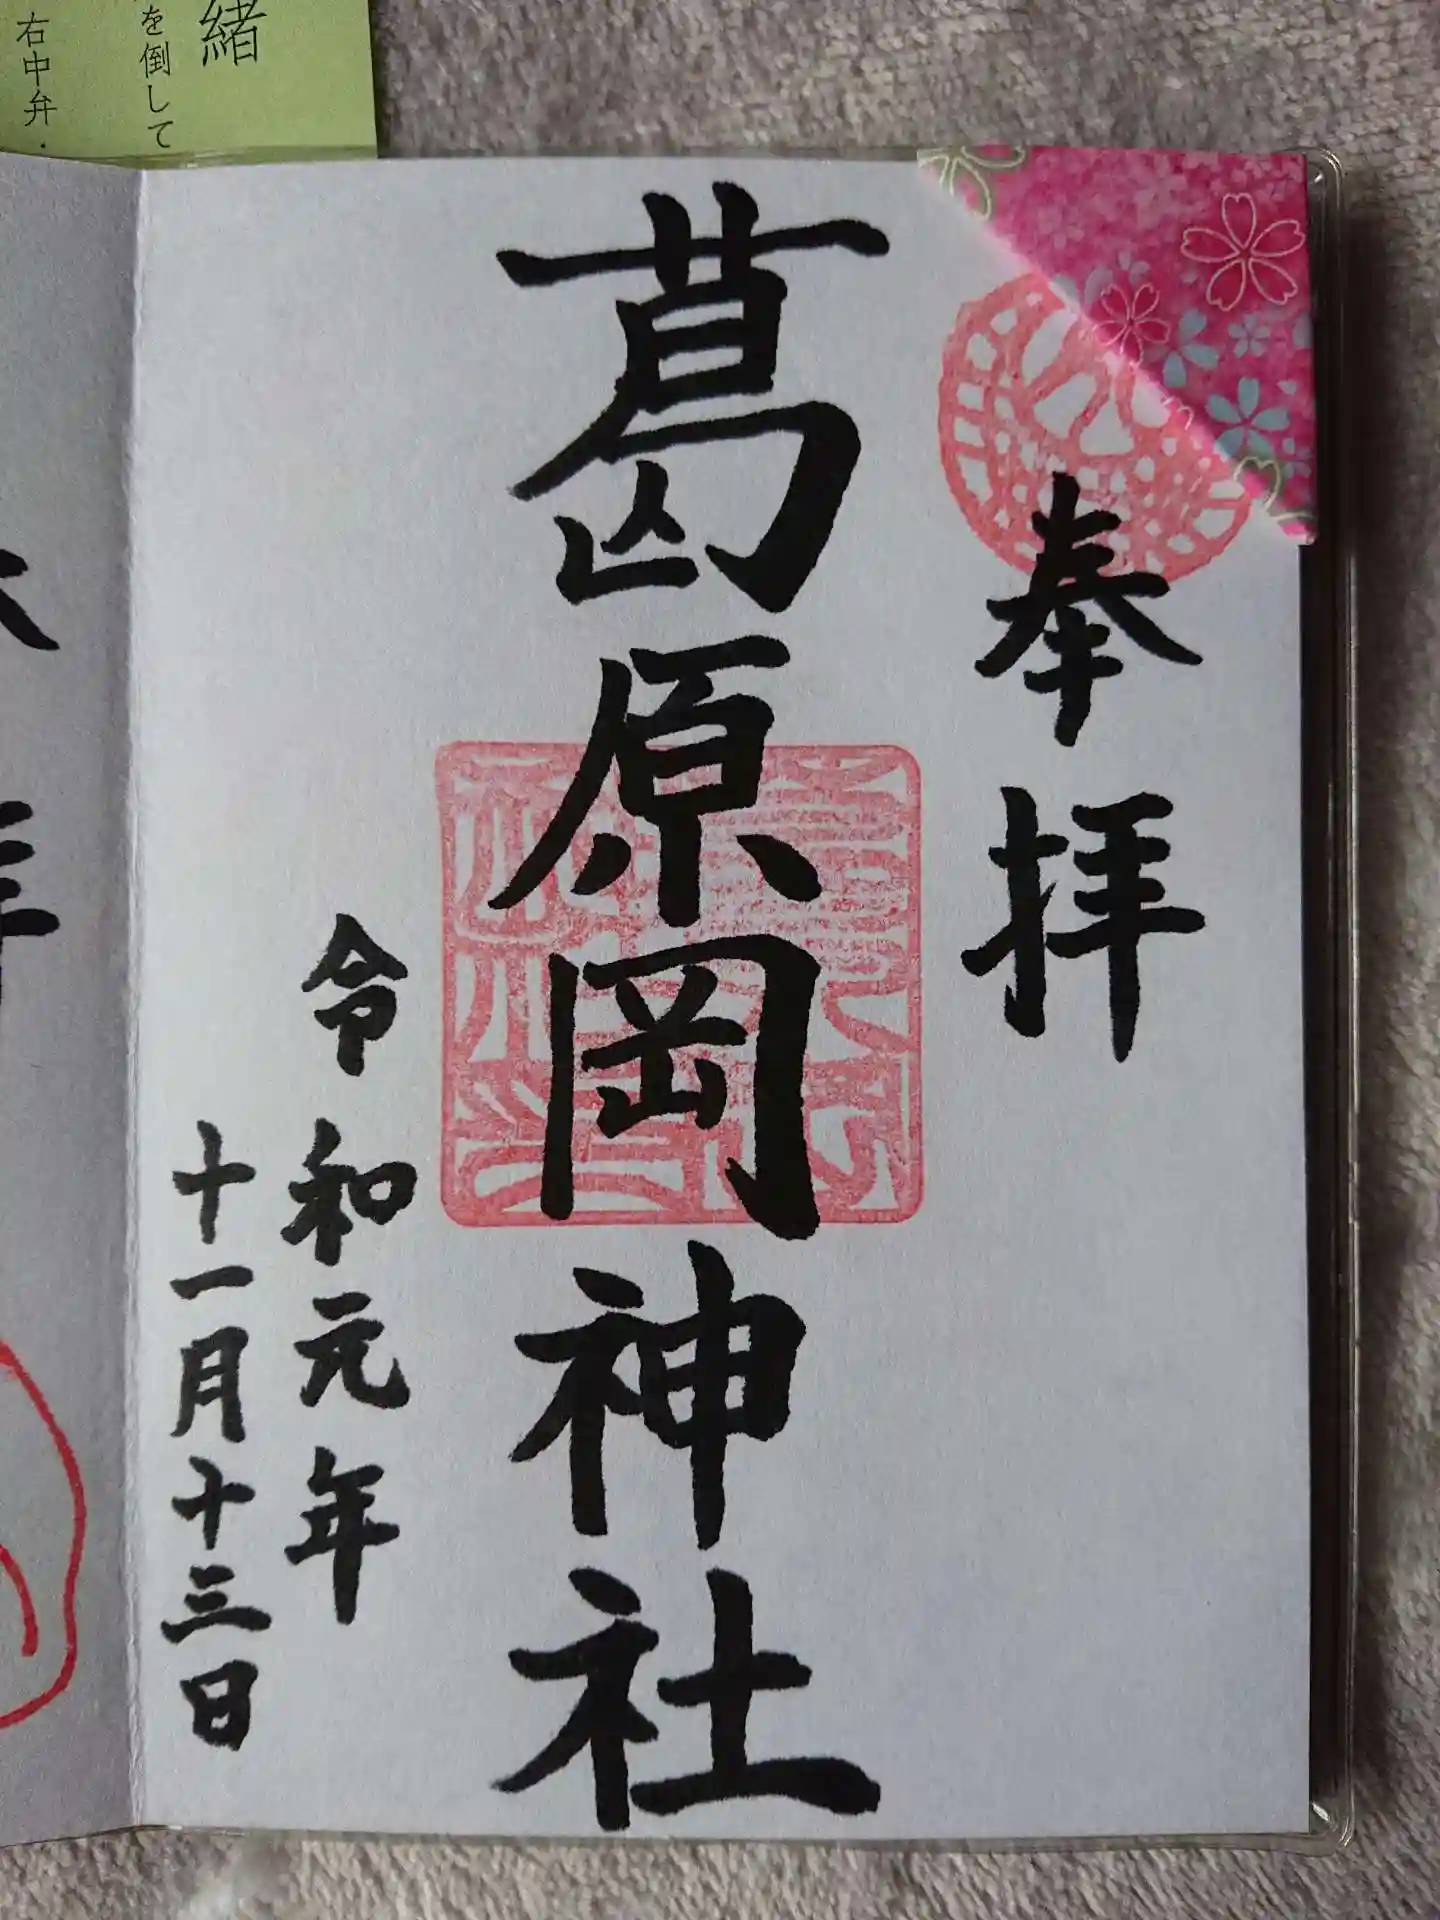 緒
を倒して
右中弁・
奉拝
葛原岡神社
令和元年
十一月十三日
年